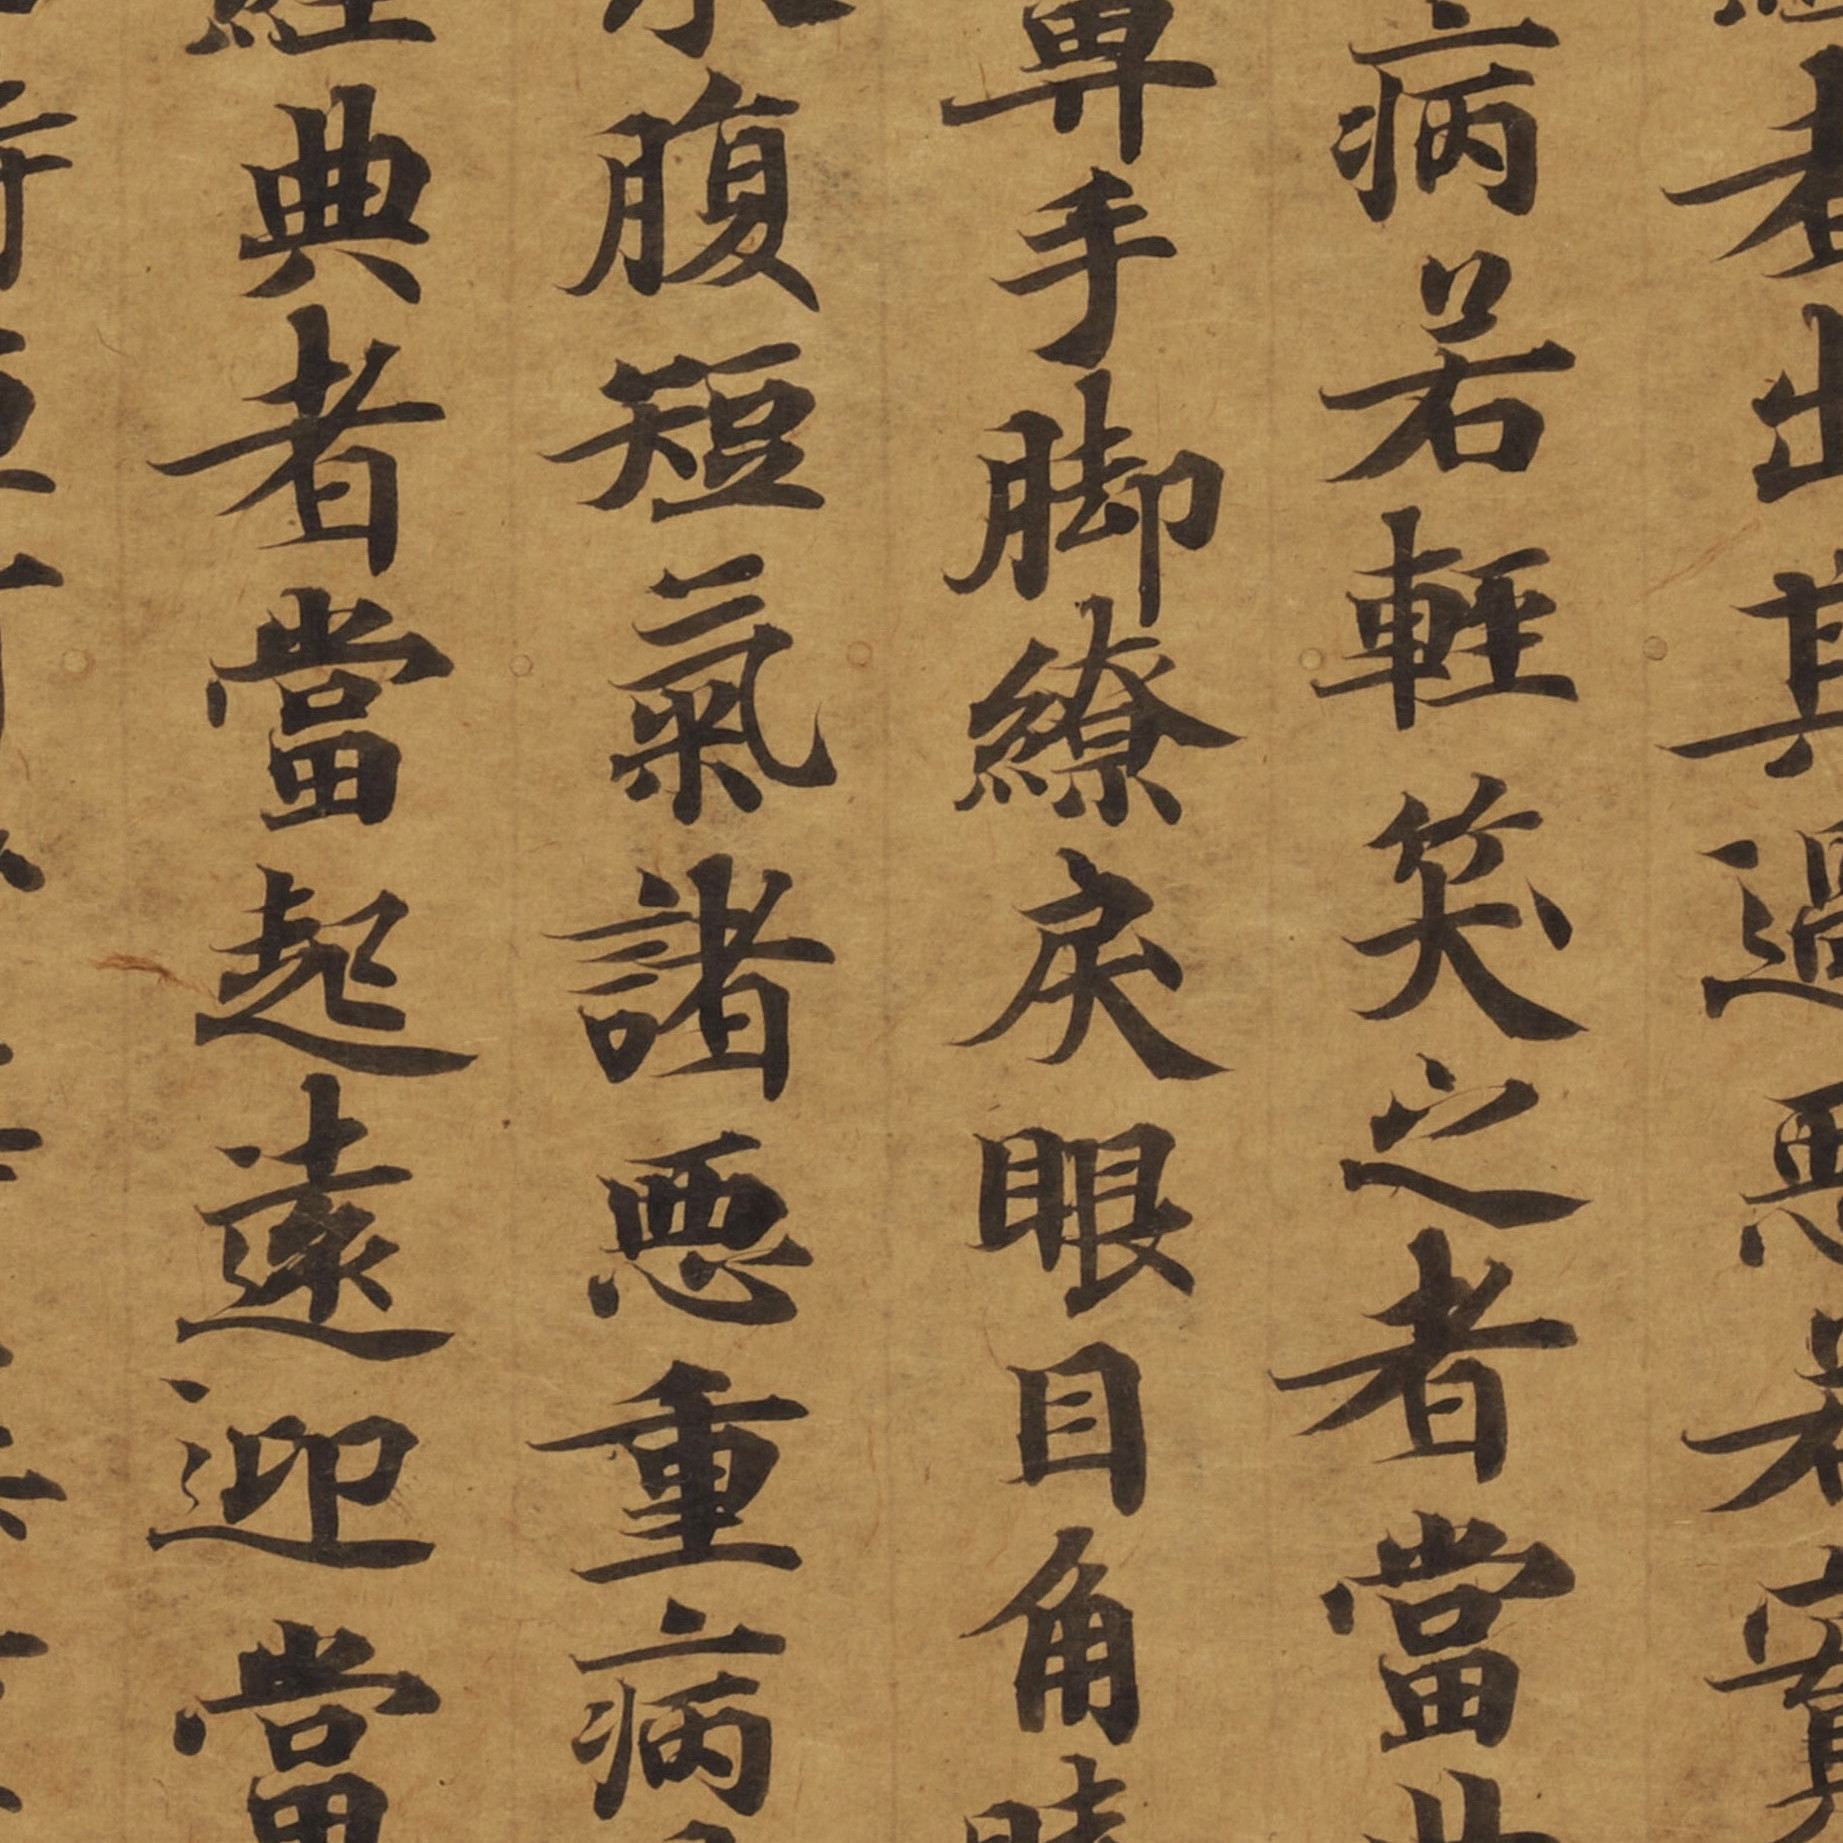 者出其過惡若實
病若輕笑之者當世
鼻手脚繚戾眼目角睞
水腹短氣諸惡重病
經典者當起遠迎當